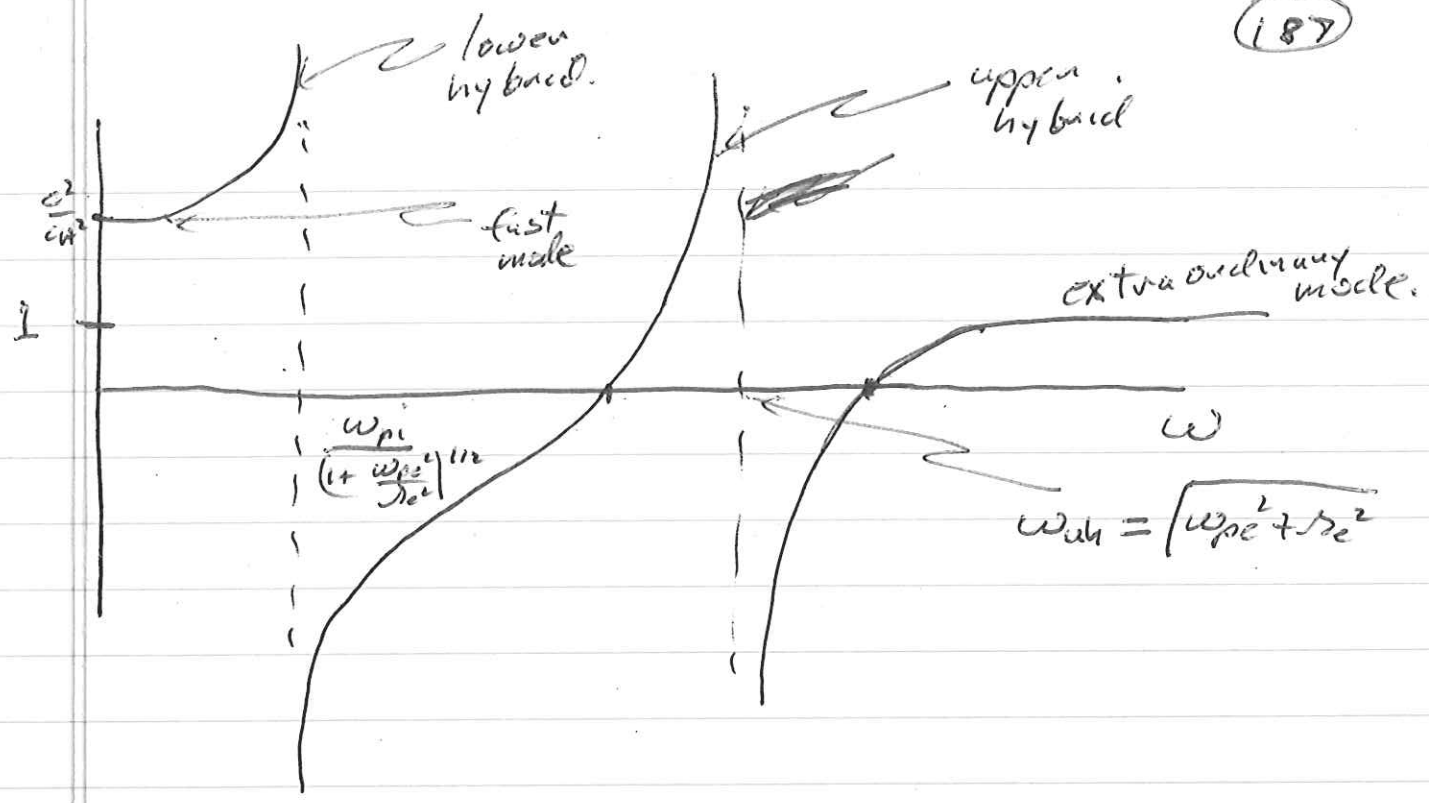 187
lower
hybrid.
upper
hybrid
c²/c_A²
fast
mode
extraordinary
mode.
1
ω_pi/(1+ω_pe²/Ω_e²)^1/2
ω
ω_uh = √ω_pe²+Ω_e²